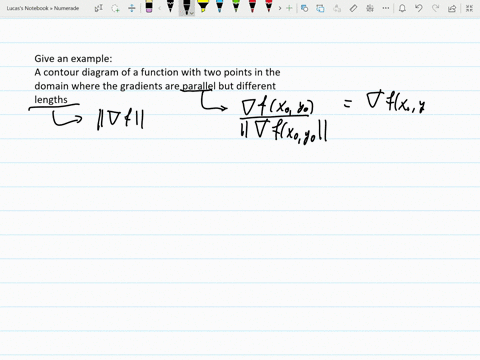 Lucas's Notebook » Numerade
Give an example:
A contour diagram of a function with two points in the
domain where the gradients are parallel but different
lengths
||∇f||
∇f(x₀, y₀) = ∇f(x₀, y
||∇f(x₀, y₀||